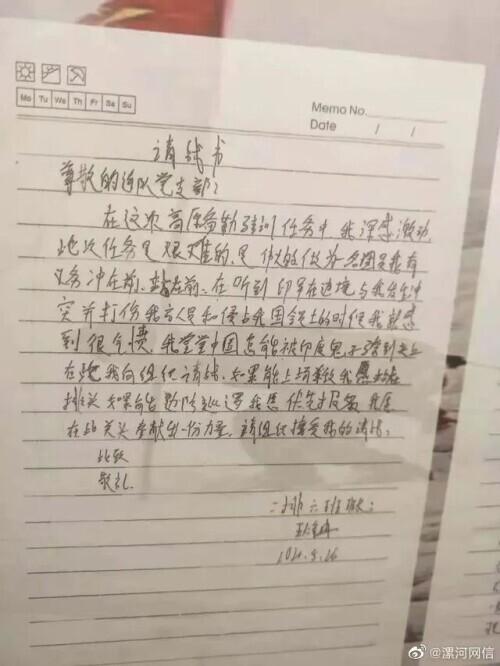 Mo Tu We Th Fr Sa Su
Memo No.
Date / /
请战书
尊敬的连队党支部:
在这次高原备勤驻训任务中我深感激动,
此次任务是艰难的,是伟大的做为名国
义务冲在前、站在前、在听到印军在边境与我发生冲
突并打伤我方人员和侵占我国领土的时候我就感
到很气愤,我堂堂中国怎能被印度
在此我向组织请战,如果能上场杀敌我愿站在
排头如果前出 巡逻我愿
在此关头贡献出一份力量,请组织接受我的请战:
此致
敬礼
二排六班
@漯河网信